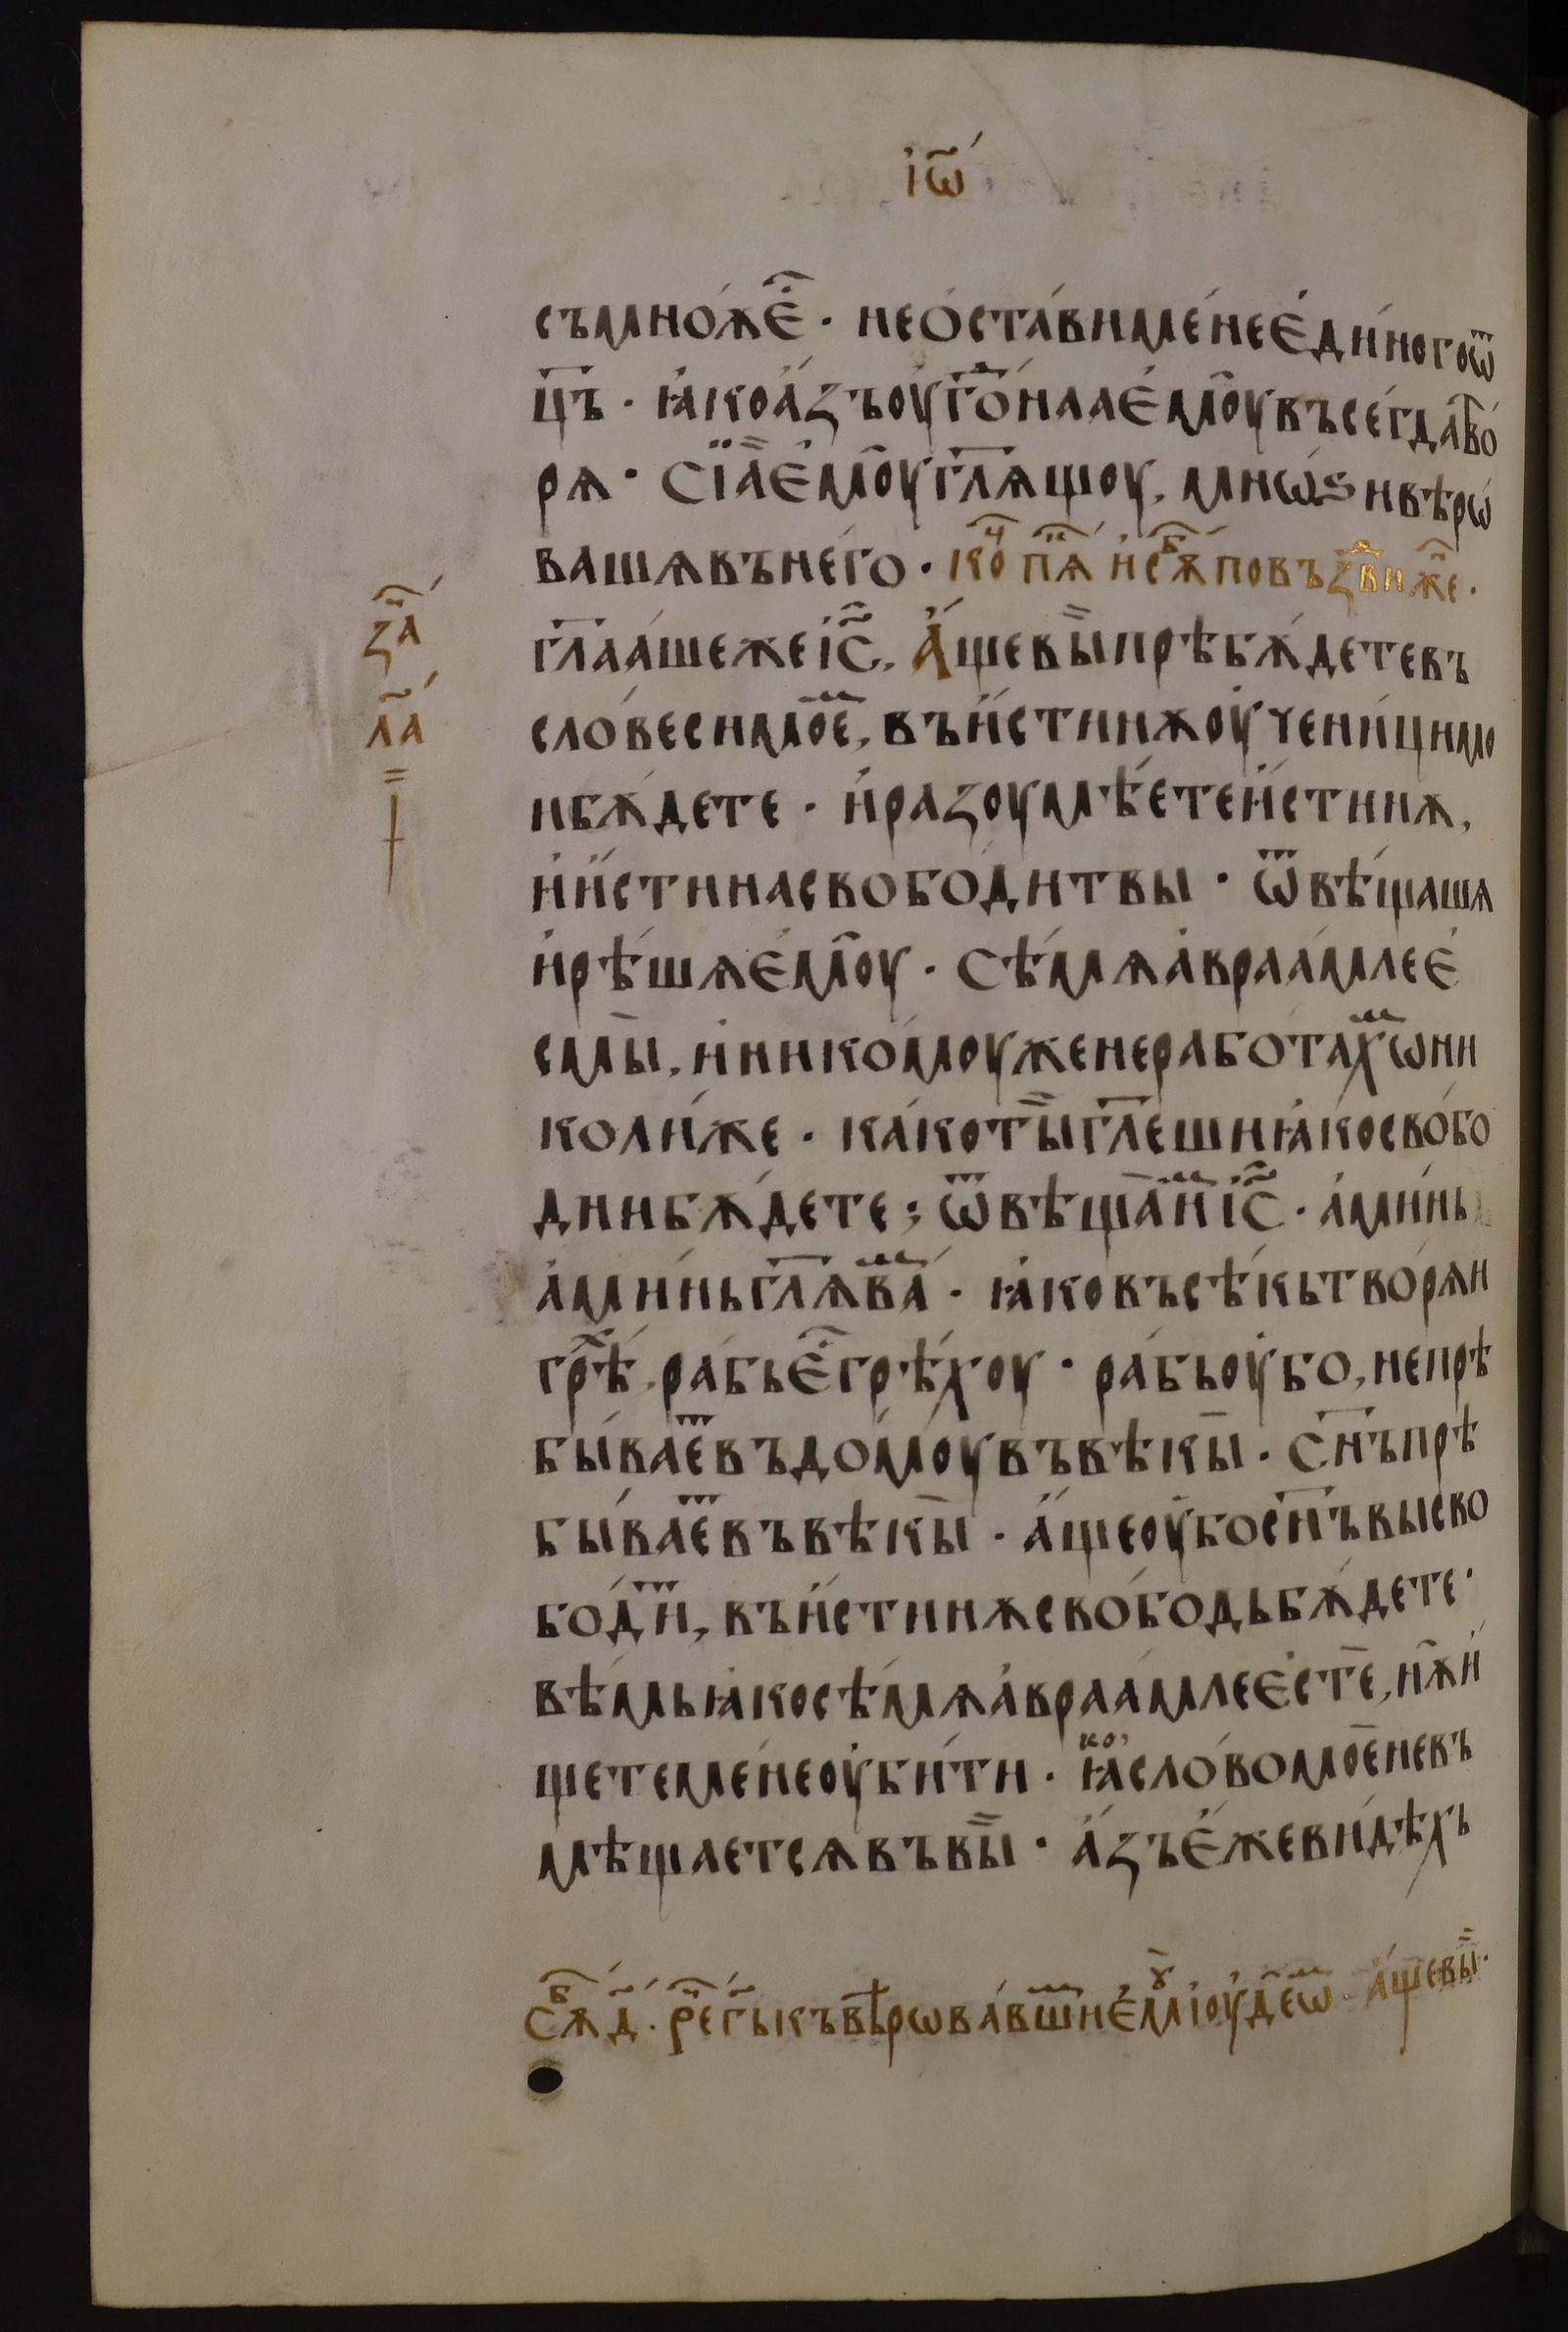 і҆ѡ҃
съмно́ѫє҆⁙ · неѡ҆ста́вимене́ єди́ногоѿ
ц҃ъ · ꙗ҆коа҆́зъоу҆го́ⷣнааемоу̑въсегда̀тво
рѫ · Сїа̀ємоу̑гл҃ѫщоу , мноѡ҆́ѕивѣ́рѡ
вашѫвънего̀ · ко́ⷱ пѧ҃ и҆ сѫⷠ҇ повъзⷣвижⷩ҇е ·
гл҃аа́шежеі҆с҃ , А҆́щевы̀прѣбѫ́детевъ
сло́весимое́ⷨ , въи҆́стинѫоу҆чени́цимо
ибѫ́дете · и҆разоумѣ́етеи҆́стинѫ ,
и҆и҆́стинасвободи́твы · ѿвѣща́шѫ
и҆рѣ́шѫємоу̑ · Сѣ́мѧа҆враа́млеє҆
смы̀ , и҆никомоу́женерабо́тахѡⷨ ни
коли́же · ка́коты̀гл҃ешиꙗ҆косво́бо
днибѫ́дете ; ѿвѣщаⷲ҇и҆мⷨі҆с҃ · а҆ми́нь
а҆ми́ньгл҃ѫваⷨ · ꙗ҆ковъсѣ́кьтворѧ́и
грѣⷯ , ра́бьє҆ⷭ҇грѣхоу̀ · ра́бьоу҆бо , непрѣ
быва́еⷮвъдомоу̑въвѣ́кы · Сн҃ъпрѣ
быва́еⷮвъвѣ́кы · а҆́щеоу҆босн҃ъвысво
бодиⷮ , въи҆́стинѫсвобо́дьбѫ́дете ·
вѣ́мьꙗ҆косѣ́мѧа҆враа́млеєстѐ , нѫ̀и҆
щетемене́оу҆би́ти · ꙗ҆́косло́вомоѐневъ
мѣща́етсѧвъвы̀ · а҆́зъє҆́жеви́дѣхь
за҃ⷱ
ла҃
сѫⷠ҇ д҃ · реⷱ҇ гь҃ къвѣрѡва́вшиⷨ є҆моу̀ і҆оу҆деѡⷨ · а҆́щевы̀ ·